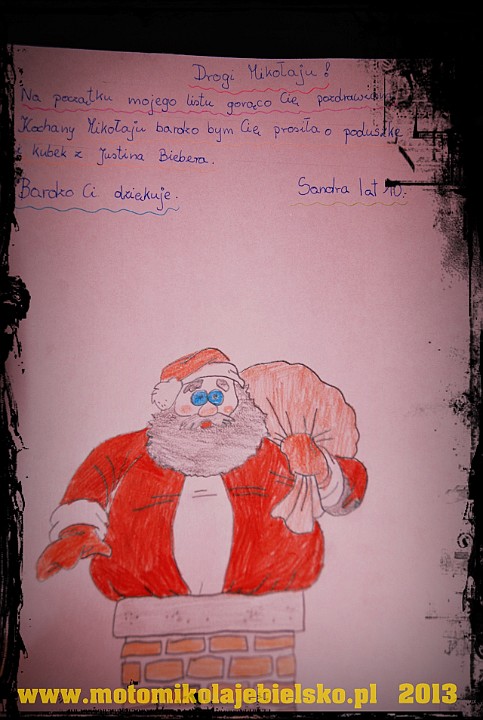 Drogi Mikołaju!
Na początku mojego listu gorąco Cię pozdrawiam
Kochany Mikołaju bardzo bym Cię prosiła o poduszkę
i kubek z Justina Biebera.
Bardzo Ci dziękuje. Sandra lat 10.
www.motomikolajebielsko.pl 2013